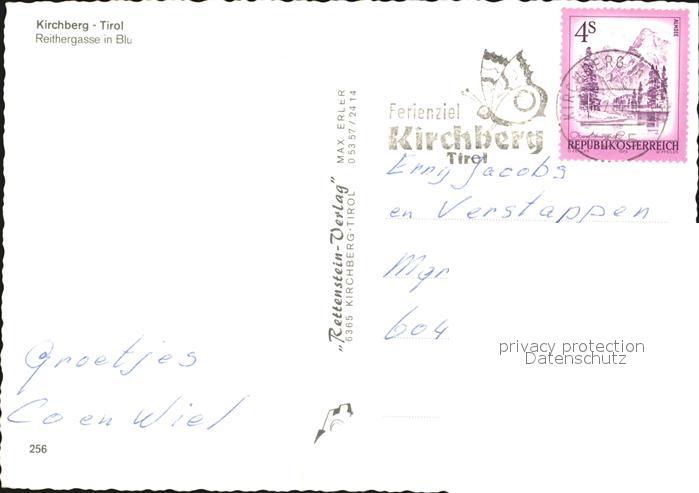 Kirchberg - Tirol
Reithergasse in Blu
4S
ALMSEE
REPUBLIK ÖSTERREICH
KIRCHBERG
Ferienziel
Kirchberg
Tirol
„Rettenstein-Verlag”
6365 KIRCHBERG-TIROL
MAX ERLER
05357/2414
Erny Jacobs
en Verstappen
Mgr
604
privacy protection
Datenschutz
Groetjes
Co en Wiel
256